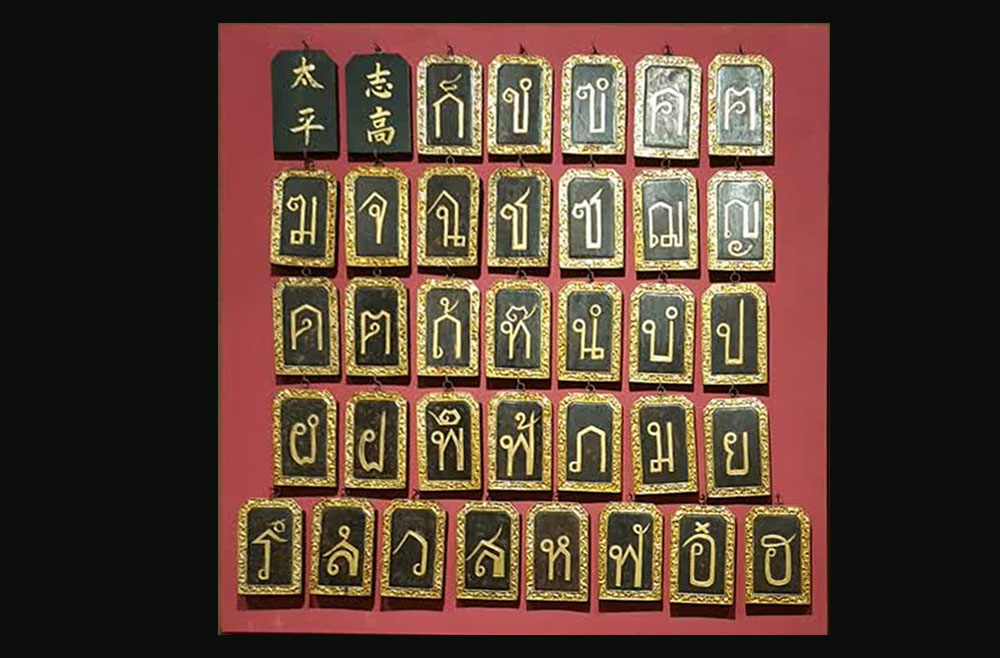 太平 志高 ก็ ขํ ฃํ ค ฅ
ฆ จ ฉ ช ซ ฌ ญ
ด ต ถ้ ท๊ นํ บํ ป
ผ ฝ พ๊ ฟ้ ภ ม ย
ร ลํ ว ส ห ฬ อ๊ ฮ